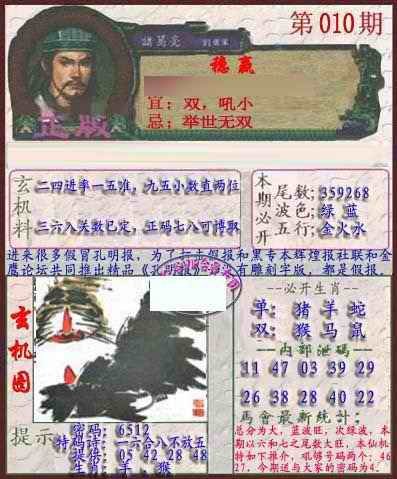 第010期
諸葛亮
稳赢
宜：双，吼小
忌：举世无双
正版
玄机料
二四进率一五准，九五小数直两位
三六八关数已定，正码七八可博取
本期必开
尾数；359268
波色；绿 蓝
五行；金火水
进来很多假冒孔明报，为了打击假报和黑专本辉煌报社联和金
鹰论坛共同推出精品《孔明报》
有雕刻字版，都是假报。
玄机图
--必开生肖--
单：猪 羊 蛇
双：猴 马 鼠
--内部泄码--
11 47 03 39 29
26 38 28 40 22
馬會最新統計：
总分为大，蓝波旺，次绿波，本
期以六和七之尾数大旺，本仙机
特如下推介，吼够号码两个：46
27，今期送与大家的密码为4.
提示
密码：6512
特码诗：一六合八不放五
提倍：05 42 28 48
生肖：羊、猴